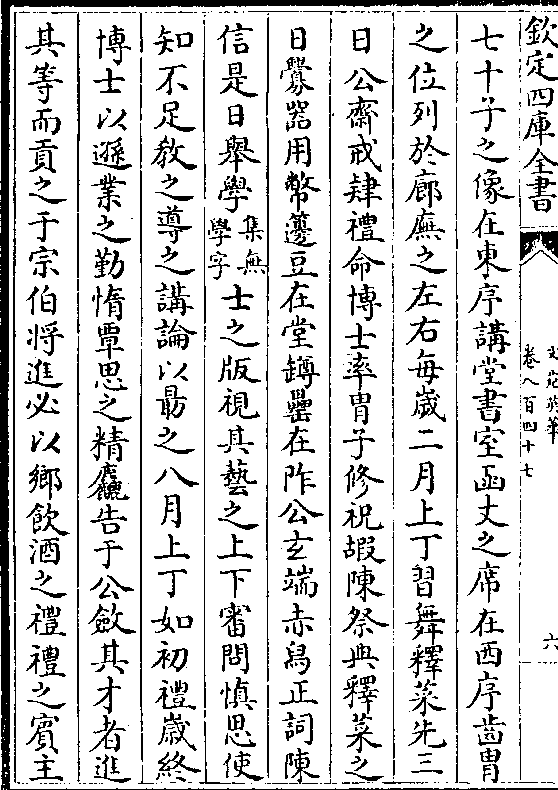 欽定四庫全書
文苑英華
卷八百四十七
六
七十子之像在東序講堂書室函丈之席在西序齒胄
之位列於廊廡之左右每歲二月上丁習舞釋菜先三
日公齋戒肄禮命博士率胄子修祝嘏陳祭典釋菜之
日釁器用幣籩豆在堂罇罍在阼公玄端赤舄正詞陳
信是日舉學集無學字士之版視其藝之上下審問慎思使
知不足教之導之講論以勗之八月上丁如初禮歲終
博士以遜業之勤惰覃思之精麤告于公斂其才者進
其等而貢之于宗伯將進必以鄉飲酒之禮禮之賓主